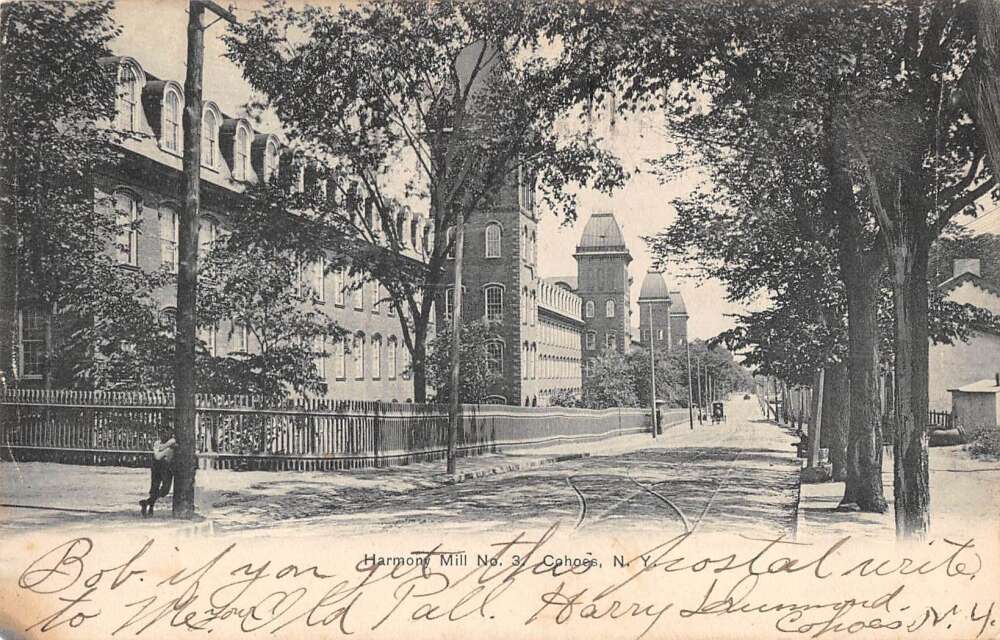 Harmony Mill No. 3. Cohoes, N. Y.
Bob. if you get this postal write.
to the your Old Pall. Harry Drummond.
Cohoes N. Y.